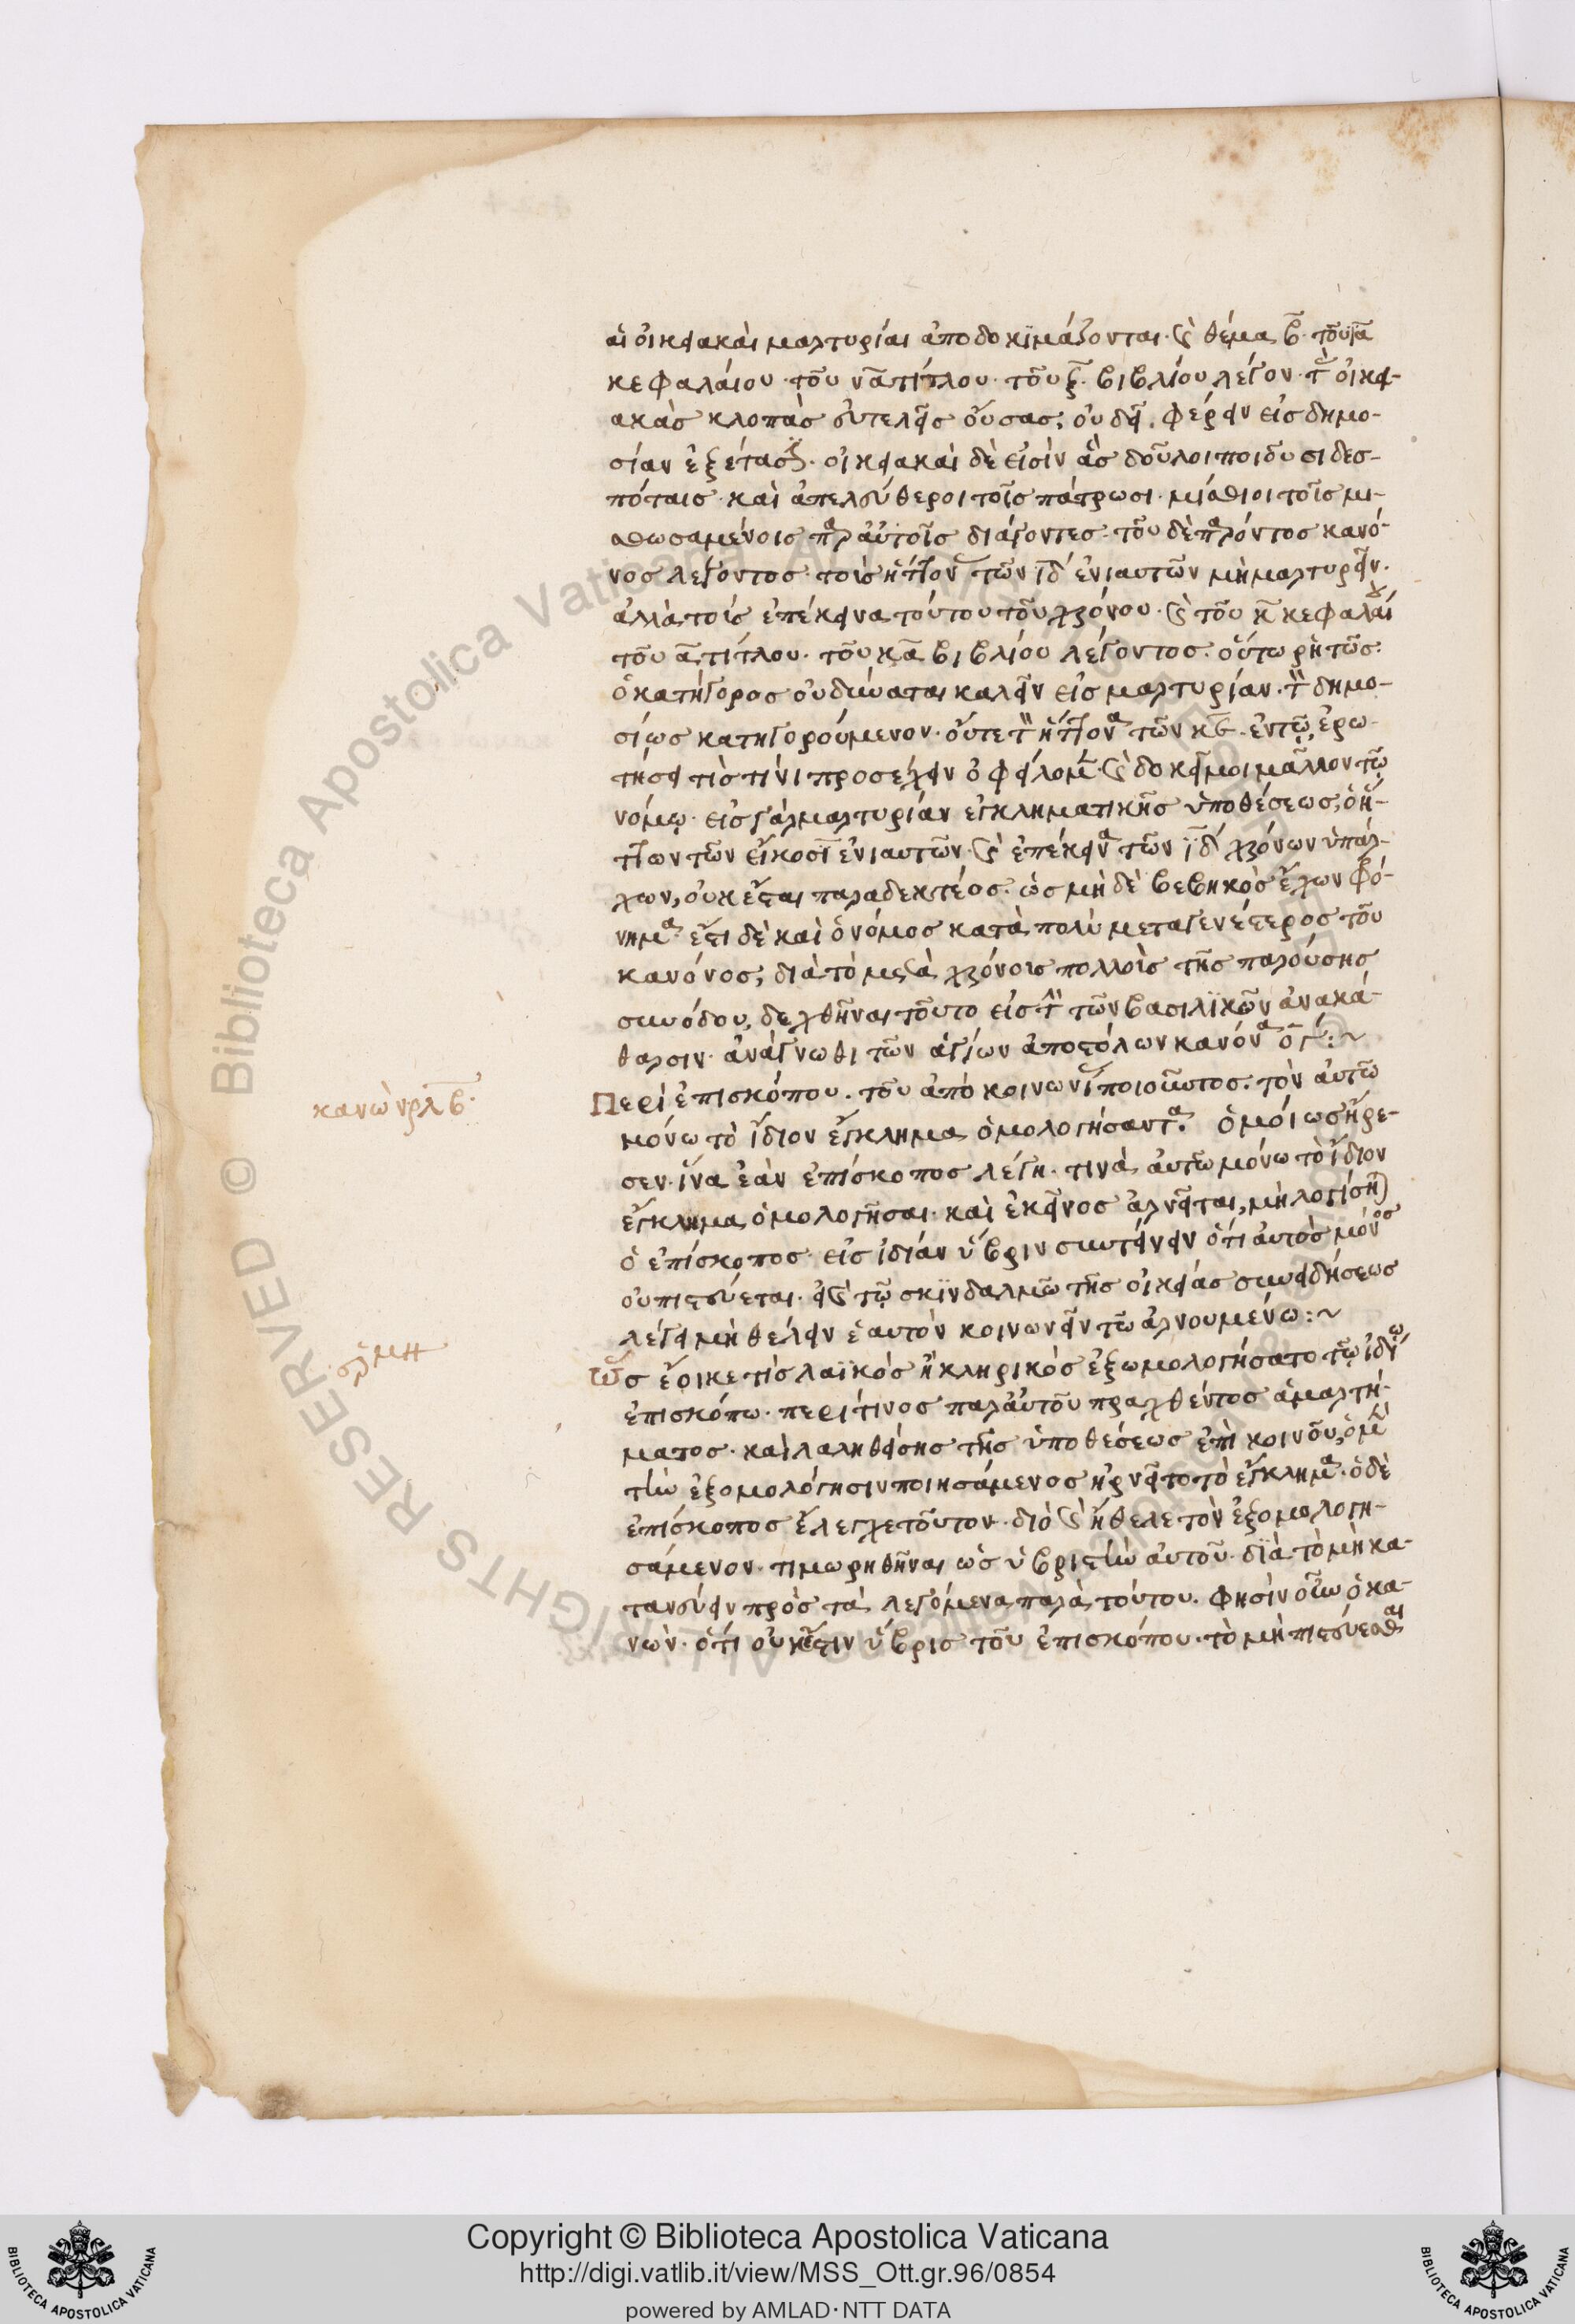 αἱ οἰκειακαὶ μαρτυρίαι ἀποδοκιμάζονται· καὶ θέμα β̅· τοῦ ια̅
κεφαλαίου· τοῦ να̅ τίτλου· τοῦ ξ̅· βιβλίου λέγον· τὰς οἰκει-
ακὰς κλοπὰς εὐτελεῖς οὔσας, οὐ δεῖ φέρειν εἰς δημο-
σίαν ἐξέτασιν· οἰκειακαὶ δὲ εἰσὶν ἃς δοῦλοι ποιοῦσι δεσ-
πόταις· καὶ ἀπελεύθεροι τοῖς πάτρωσι· μίσθιοι τοῖς μι-
σθωσαμένοις παρ αὐτοῖς διάγοντες· τοῦ δὲ παρόντος κανό-
νος λέγοντος· τοὺς ἧττον τῶν ιδ̅ ἐνιαυτῶν μὴ μαρτυρεῖν·
ἀλλὰ τοὺς ἐπέκεινα τούτου τοῦ χρόνου· καὶ τοῦ κ̅ κεφαλαίου
τοῦ α̅ τίτλου· τοῦ κα̅ βιβλίου λέγοντος· οὕτω ρητῶς·
ὁ κατήγορος οὐ δύναται καλεῖν εἰς μαρτυρίαν· τὸν δημο-
σίως κατηγορούμενον· οὔτε τὸν ἥττονα τῶν κ̅· ἐν τῷ ἐρω-
τήσει τίς τίνι προσέχειν ὀφείλομεν· καὶ δοκεῖ μοι μᾶλλον τῷ
νόμῳ· εἰς γὰρ μαρτυρίαν ἐγκληματικῆς ὑποθέσεως, ὁ ἥτ-
των τῶν εἴκοσι ἐνιαυτῶν· καὶ ἐπέκεινα τῶν ιδ̅ χρόνων ὑπάρ-
χων, οὐκ ἔσται παραδεκτέος· ὡς μὴ δὲ βεβηκὸς ἔχων φρό-
νημα· ἔτι δὲ καὶ ὁ νόμος κατὰ πολὺ μεταγενέστερος τοῦ
κανόνος, διὰ τὸ μετὰ χρόνους πολλοὺς τῆς παρούσης
συνόδου, δεχθῆναι τοῦτο εἰς τὴν τῶν βασιλικῶν ἀνακά-
θαρσιν· ἀνάγνωθι τῶν ἁγίων ἀποστόλων κανόνα ο̅ε̅:~
κανὼν ρλβ̅·
Περὶ ἐπισκόπου· τοῦ ἀποκοινώνητον ποιοῦντος· τὸν αὐτῶ
μόνω τὸ ἴδιον ἔγκλημα ὁμολογήσαντα· ὁμοίως ἤρε-
σεν· ἵνα ἐὰν ἐπίσκοπος λέγη· τινὰ αὐτῶ μόνω τὸ ἴδιον
ἔγκλημα ὁμολογῆσαι· καὶ ἐκεῖνος ἀρνεῖται, μὴ λογίσηται
ὁ ἐπίσκοπος· εἰς ἰδίαν ὕβριν συντείνειν ὅτι αὐτὸς μόνος
οὐ πιστεύεται· εἰ καὶ τῷ σκινδαλμῶ τῆς οἰκείας συνειδήσεως
λέγει μὴ θέλειν ἑαυτὸν κοινωνεῖν τῶ ἀρνουμένω:~
ερμη
Ὡς ἔοικε τὶς λαϊκὸς ἢ κληρικὸς ἐξωμολογήσατο τῷ ἰδίω
ἐπισκόπω· περί τινος παρ αὐτοῦ πραχθέντος ἁμαρτή-
ματος· καὶ λαληθείσης τῆς ὑποθέσεως ἐπὶ κοινοῦ, ὁ μὲν
τὴν ἐξομολόγησιν ποιησάμενος ἠρνεῖτο τὸ ἔγκλημα· ὁ δὲ
ἐπίσκοπος ἔλεγχε τοῦτον· διὸ καὶ ἤθελε τὸν ἐξομολογη-
σάμενον· τιμωρηθῆναι ὡς ὑβριστὴν αὐτοῦ· διὰ τὸ μὴ κα-
τανεύειν πρὸς τὰ λεγόμενα παρὰ τούτου· φησὶν οὖν ὁ κα-
νών· ὅτι οὐκ ἔστιν ὕβρις τοῦ ἐπισκόπου· τὸ μὴ πιστεύεσθαι
Copyright © Biblioteca Apostolica Vaticana
http://digi.vatlib.it/view/MSS_Ott.gr.96/0854
powered by AMLAD·NTT DATA